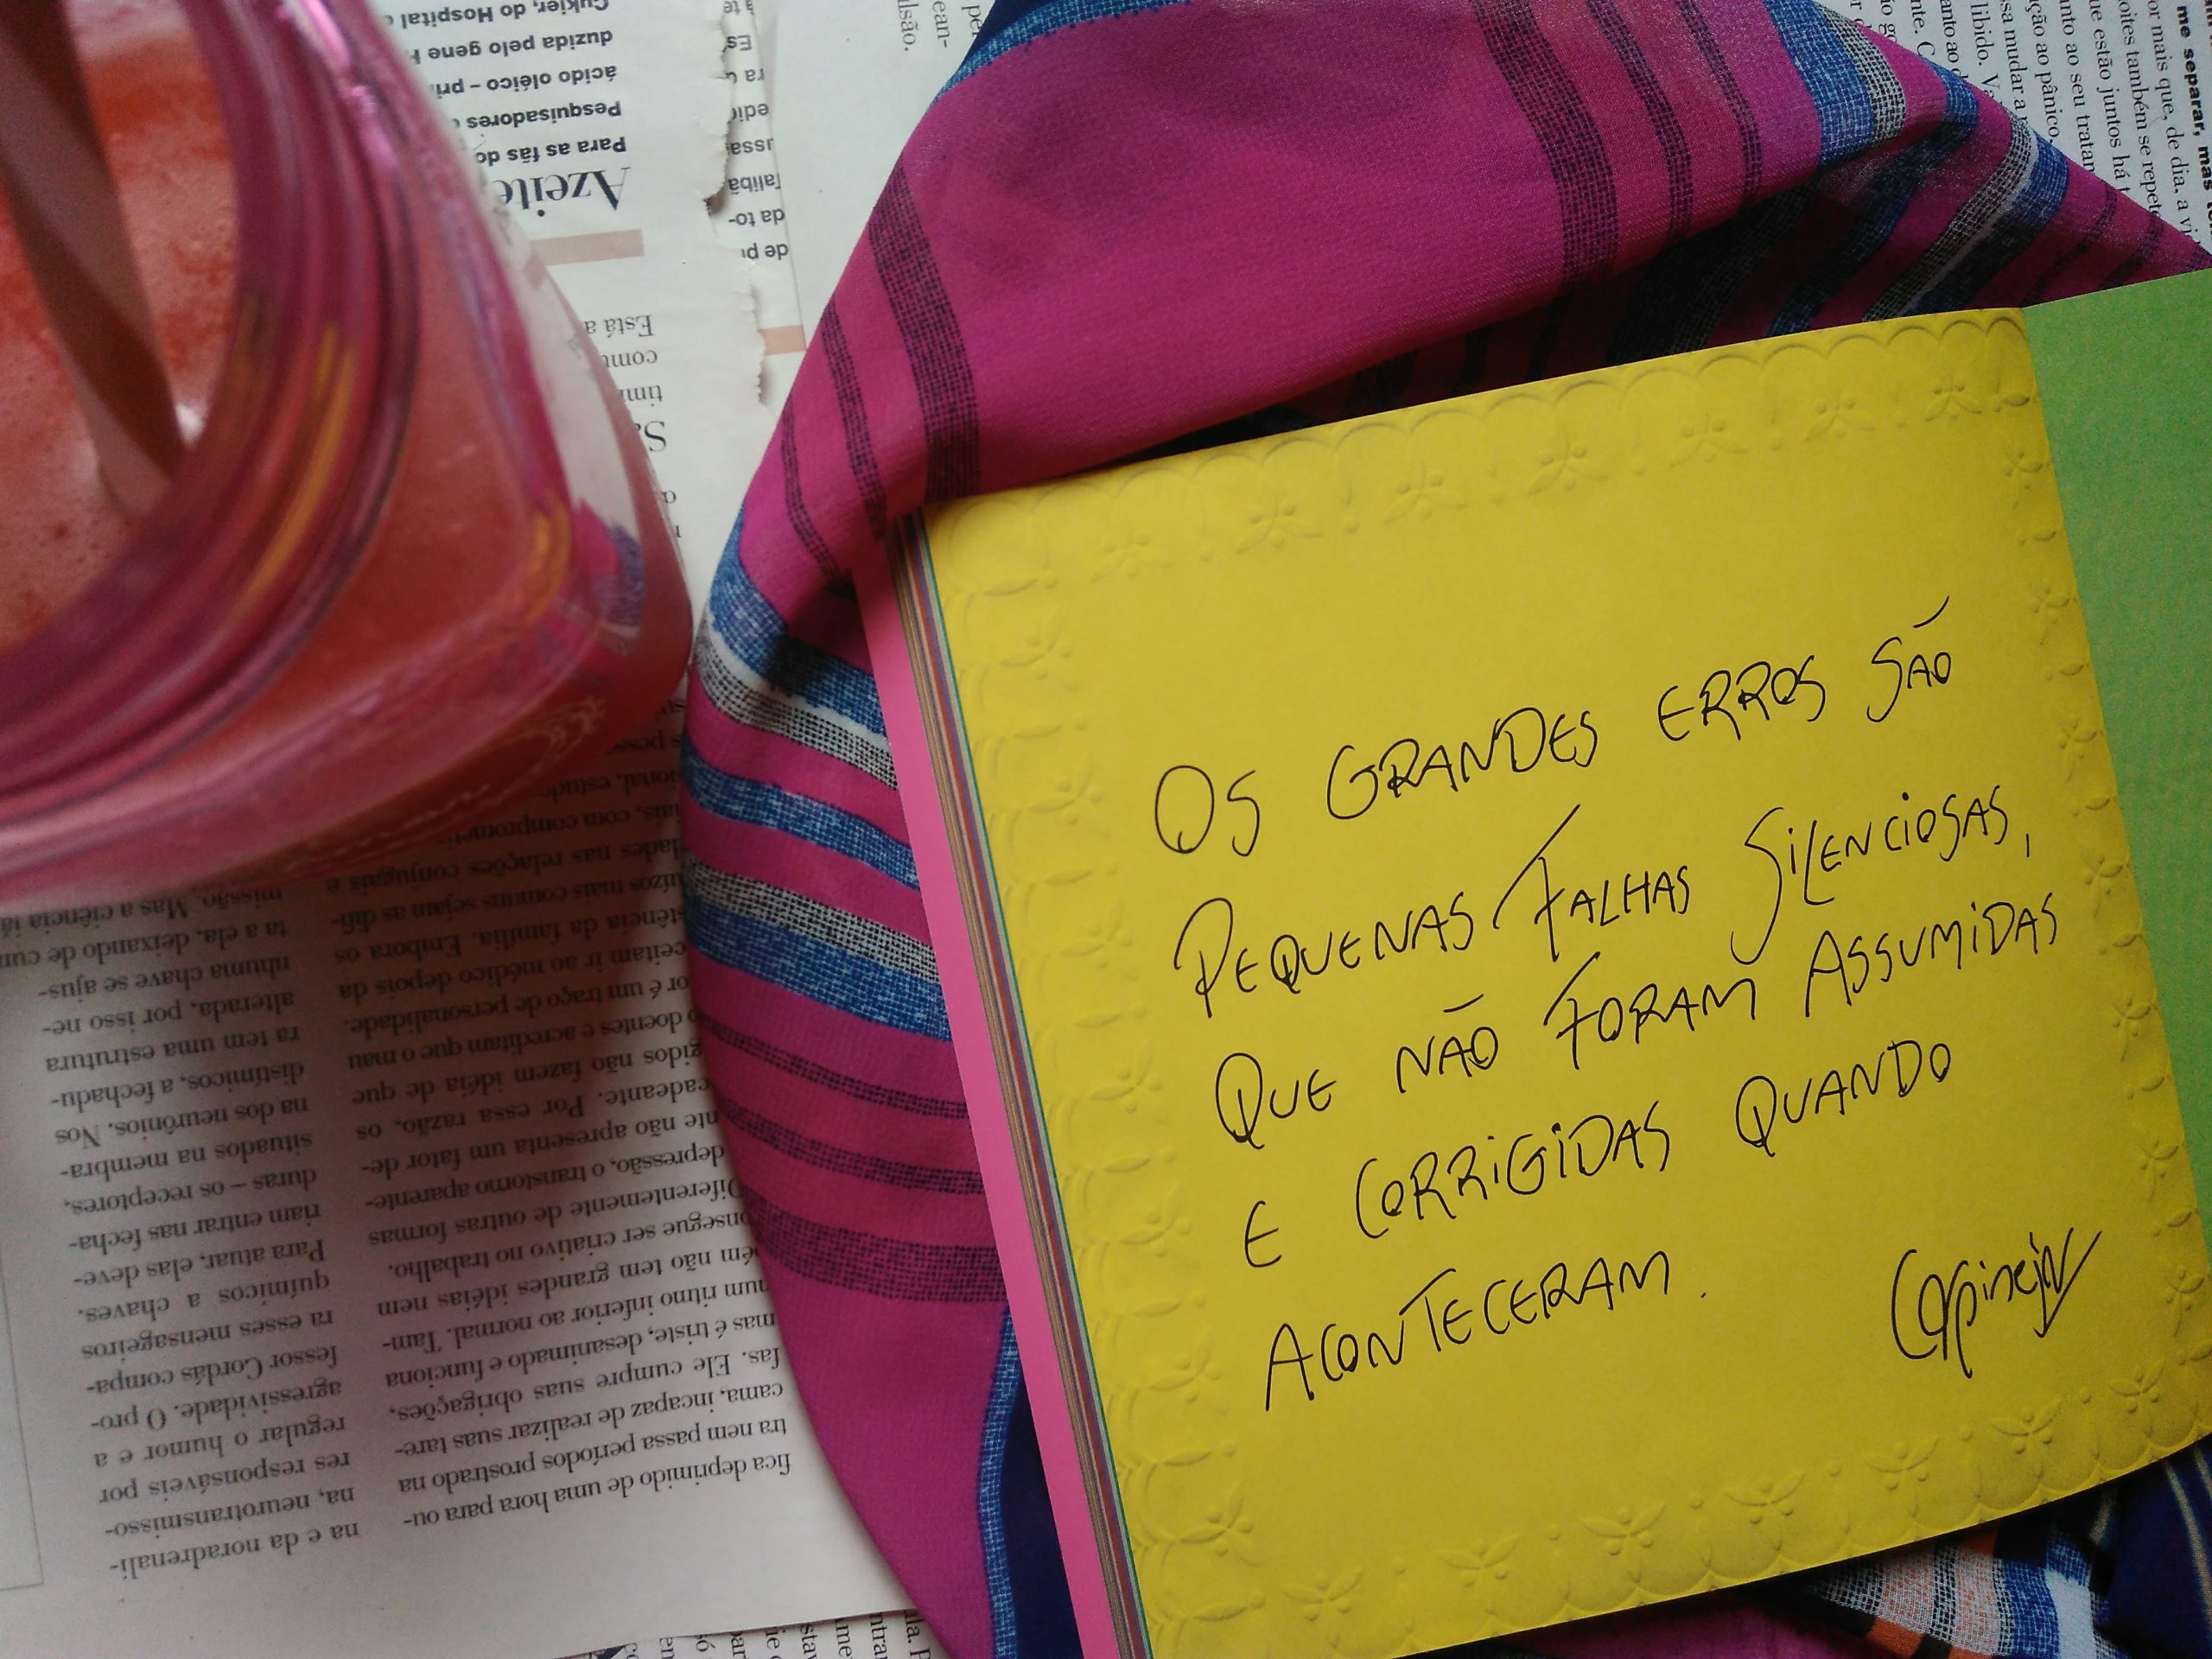 OS GRANDES ERROS SÃO
PEQUENAS FALHAS SILENCIOSAS,
QUE NÃO FORAM ASSUMIDAS
E CORRIGIDAS QUANDO
ACONTECERAM.
Carpinejar
Cukier, do Hospital
duzida pelo gene
ácido oléico – pri
Pesquisadores
Para as fãs do
Azeite
Está a
com
tim
lsão.
ean-
Es
ra
edi
de
da to-
me separar, mas
or mais que, de dia, a vi
oites também se repete
ue estão juntos há
anto ao seu tratam
ção ao pânico.
sa mudar a
libido.
fica deprimido de uma hora para ou-
tra nem passa períodos prostrado na
cama, incapaz de realizar suas tare-
fas. Ele cumpre suas obrigações,
mas é triste, desanimado e funciona
num ritmo inferior ao normal. Tam-
bém não tem grandes idéias nem
onsegue ser criativo no trabalho.
Diferentemente de outras formas
depressão, o transtorno aparente-
nte não apresenta um fator de-
cadeante. Por essa razão, os
gidos não fazem idéia de que
o doentes e acreditam que o mau
or é um traço de personalidade.
ceitam ir ao médico depois da
stência da família. Embora os
uízos mais comuns sejam as difi-
dades nas relações conjugais e
iais, com comprome
sional, estud
s pess
na e da noradrenali-
na, neurotransmisso-
res responsáveis por
regular o humor e a
agressividade. O pro-
fessor Cordás compa-
ra esses mensageiros
químicos a chaves.
Para atuar, elas deve-
riam entrar nas fecha-
duras – os receptores,
situados na membra-
na dos neurônios. Nos
distímicos, a fechadu-
ra tem uma estrutura
alterada, por isso ne-
nhuma chave se ajus-
ta a ela, deixando de cum
missão. Mas a ciência já